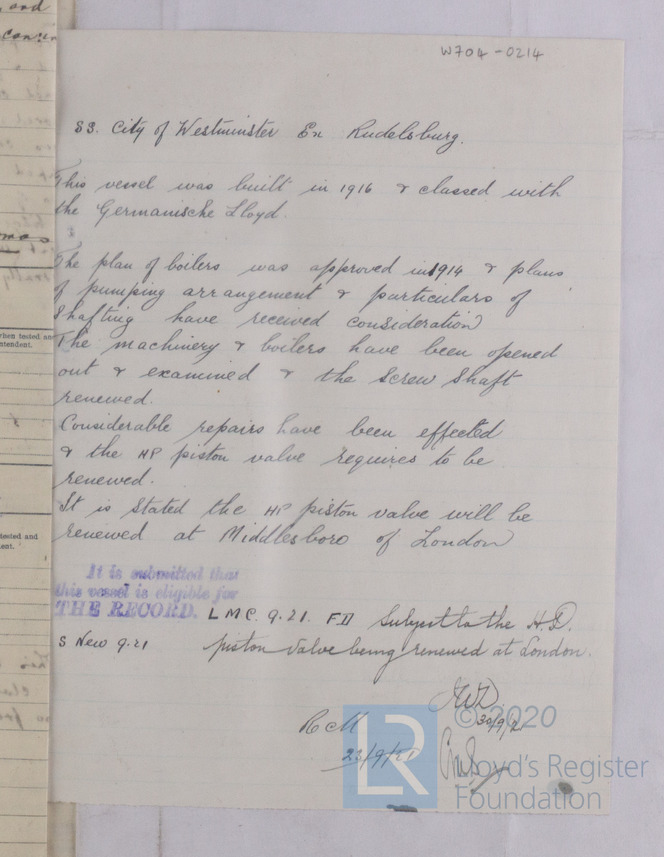 W704-0214
SS. City of Westminster Ex Rudelsburg.
This vessel was built in 1916 & classed with
the Germanische Lloyd.
The plan of boilers was approved in 1914 & plans
of pumping arrangement & particulars of
shafting have received consideration
The machinery & boilers have been opened
out & examined & the Screw Shaft
renewed.
Considerable repairs have been effected
& the HP piston valve requires to be
renewed.
It is stated the HP piston valve will be
renewed at Middlesboro of London
It is submitted that
this vessel is eligible for
THE RECORD. LMC. 9.21. FD Subject to the H.P.
S New 9.21 piston valve being renewed at London.
© 2020
30/9/21
RCM
23/9/21
LR Lloyd's Register
Foundation
and
when tested and
tested and